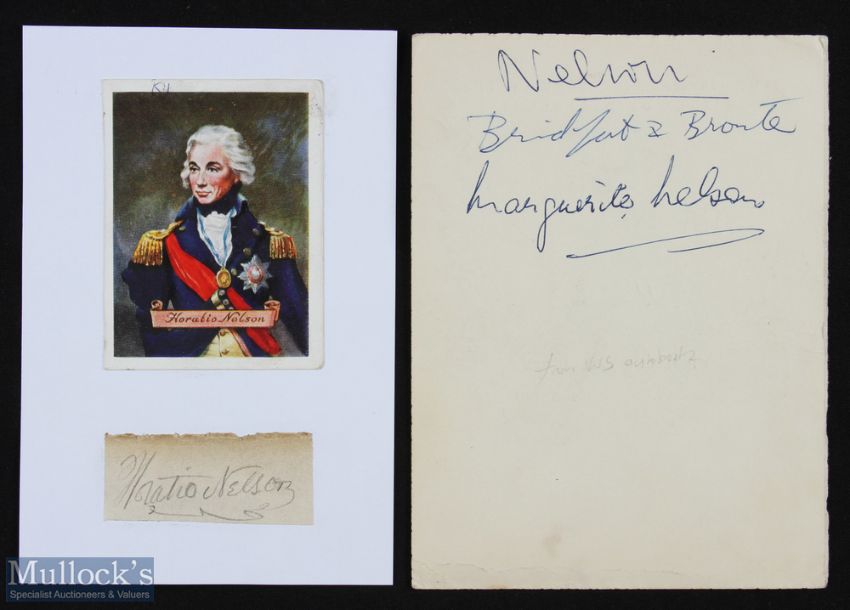 Horatio Nelson
Horatio Nelson
Nelson
Bridport & Bronte
Marguerite Nelson
Mullock's
Specialist Auctioneers & Valuers